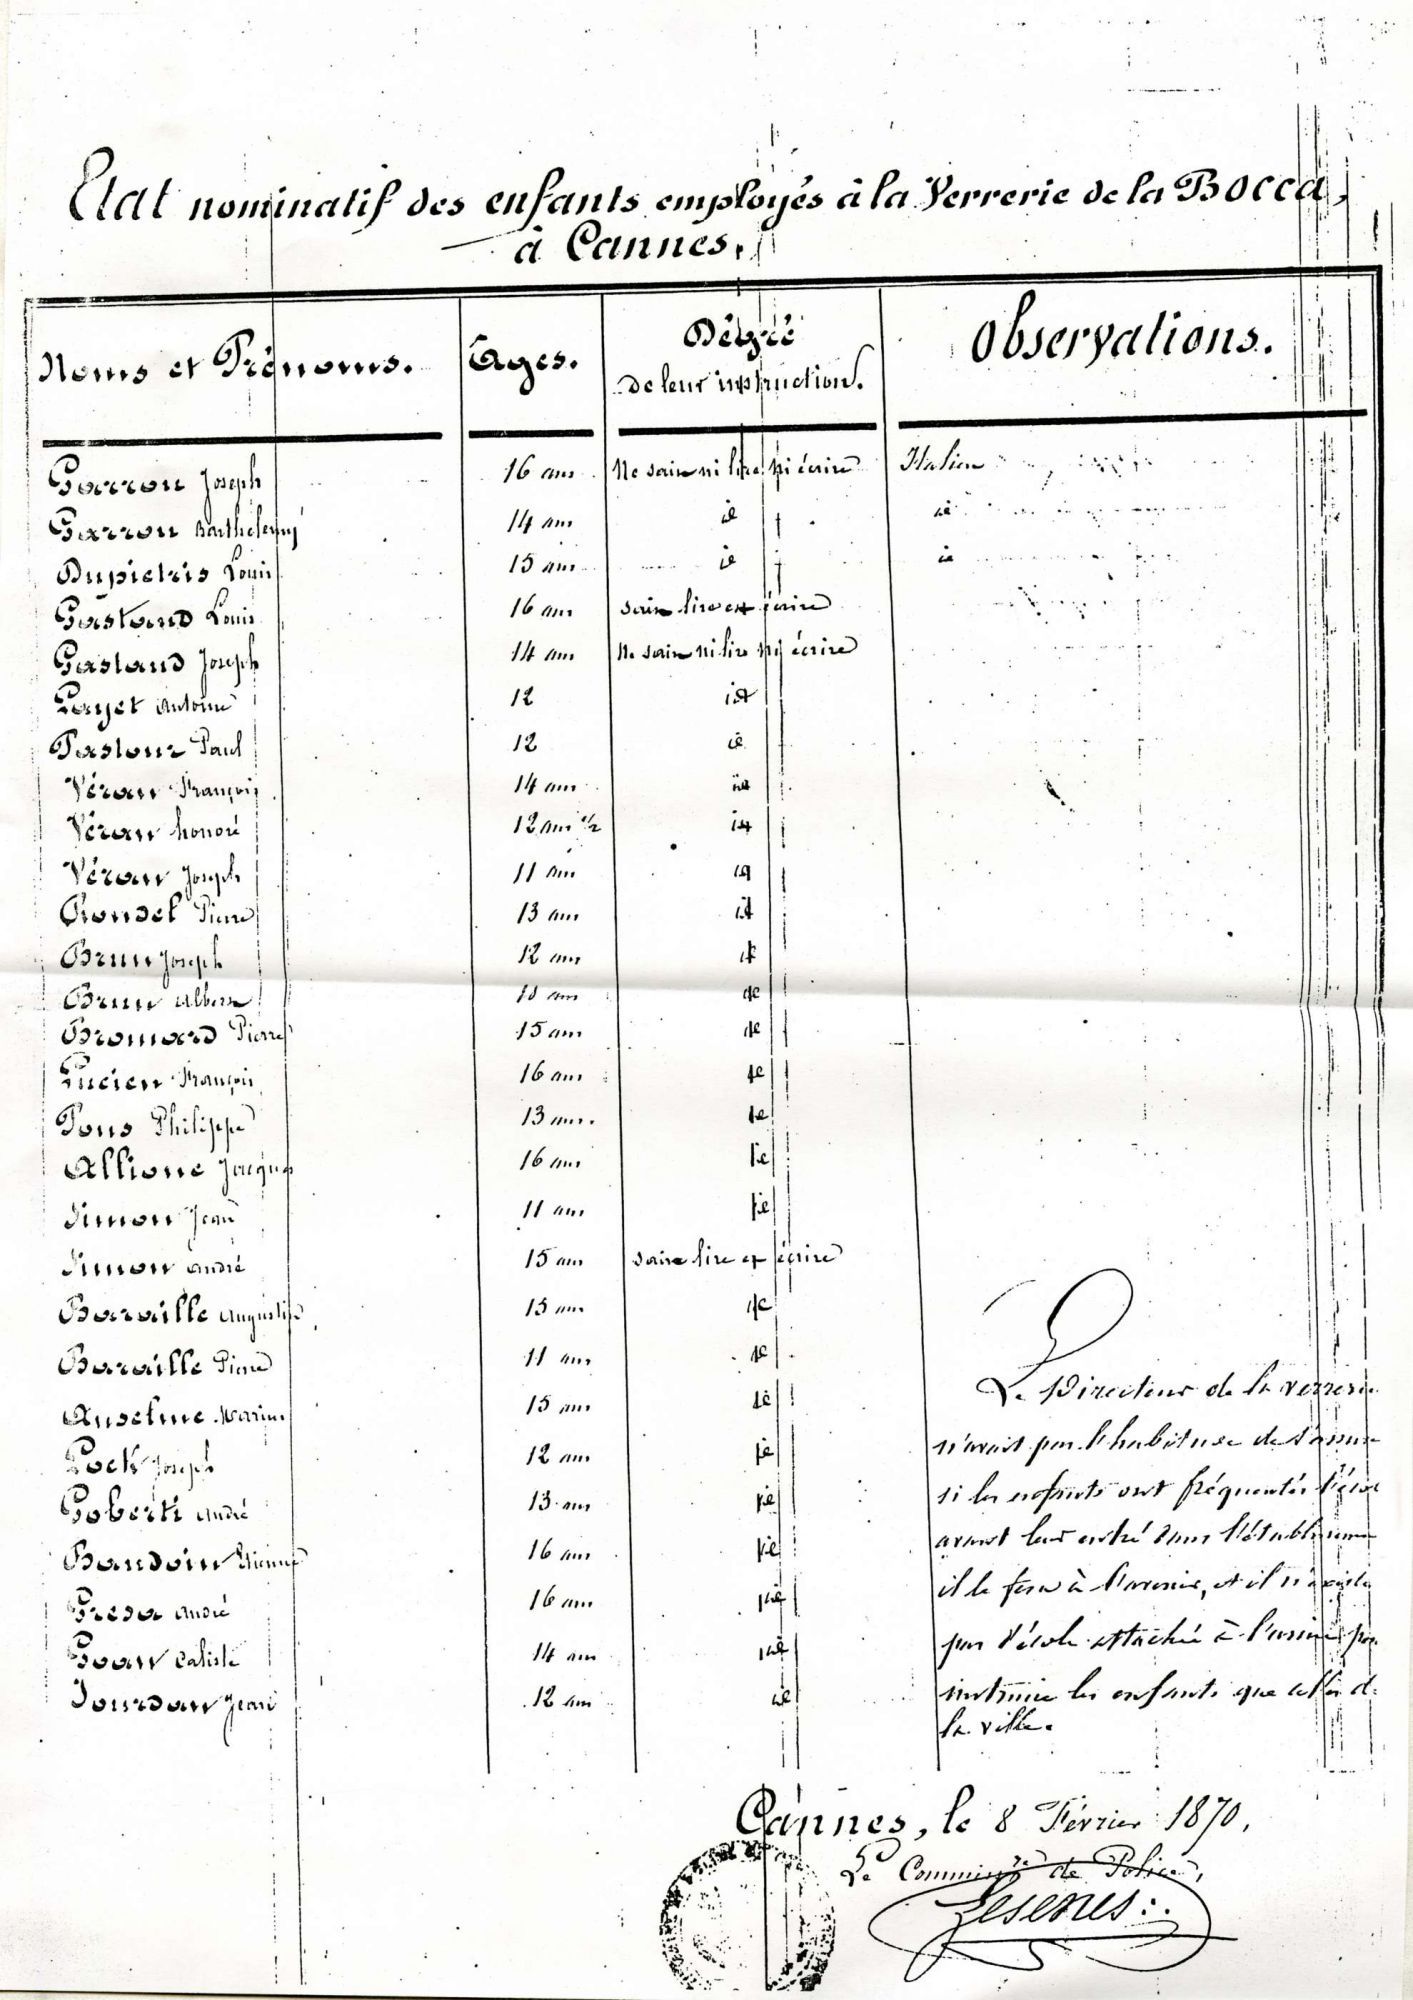 Etat nominatif des enfants employés à la Verrerie de la Bocca,
à Cannes.
Noms et Prénoms. Ages. Dégré de leur instruction. Observations.
Garron Joseph 16 ans Ne sait ni lire ni écrire Italien
Garron Barthelemy 14 ans id id
Dupietris Louis 15 ans id id
Gastaud Louis 16 ans sait lire et écrire
Gastaud Joseph 14 ans Ne sait ni lire ni écrire
Layet Antoine 12 id
Pastour Paul 12 id
Véran François 14 ans id
Véran honoré 12 ans 1/2 id
Véran Joseph 11 ans id
Rondel Pierre 13 ans id
Brun Joseph 12 ans id
Brun Albert ans id
Bromard Pierre 15 ans id
Lucien François 16 ans id
Pons Philippe 13 ans. id
Allione Jacques 16 ans id
Simon Jean 11 ans id
Simon André 15 ans sait lire et écrire
Baraille Augustin 15 ans id
Baraille Pierre 11 ans id
Anselme Marius 15 ans id
Joseph 12 ans id
Goberti André 13 ans id
Baudoin Etienne 16 ans id
André 16 ans id
Caliste 14 ans id
Jourdan Jean 12 ans id
Le Directeur de la verrerie
n'avait pas l'habitude de s'assurer
si les enfants ont fréquentés l'école
avant leur entré dans l'établissement
il le fera à l'avenir, et il n'existe
pas d'école attachée à l'usine pour
instruire les enfants que celles de
la ville.
Cannes, le 8 Février 1870.
Le Commissre de Police,